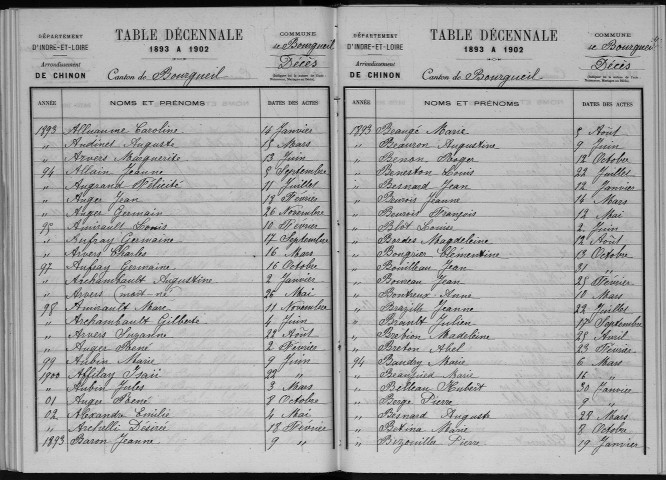 DÉPARTEMENT
D'INDRE-ET-LOIRE
Arrondissement
DE CHINON
TABLE DÉCENNALE
1893 A 1902
Canton de Bourgueil
COMMUNE
de Bourgueil
Décès
ANNÉE NOMS ET PRÉNOMS DATES DES ACTES
1893 Alluanne Caroline 14 Janvier
" Andinet Auguste 15 Mars
" Arvers Marguerite 13 Juin
94 Allain Jeanne 5 Septembre
" Augrand Félicité 11 Juillet
" Auger Jean 12 Février
" Auger Germain 26 Novembre
95 Amirault Louis 10 Février
" Aufray Germaine 17 Septembre
" Arvers Charles 16 Mars
97 Aufray Germaine 16 Octobre
" Archambault Augustine 2 Janvier
" Arvers (mort-né) 26 Mai
98 Amirault Marc 11 Novembre
" Archambault Gilberte 4 Juin
" Arvers Suzanne 22 Août
" Auger René 2 Février
99 Aubin Marie 9 Juin
1900 Affilay 22 "
" Aubin Jules 3 Mars
01 Auger René 8 Octobre
02 Alexandre Emilie 4 Mai
" Désiré 18 Février
1893 Baron Jeanne 9 "
DÉPARTEMENT
D'INDRE-ET-LOIRE
Arrondissement
DE CHINON
TABLE DÉCENNALE
1893 A 1902
Canton de Bourgueil
COMMUNE
de Bourgueil
Décès
ANNÉE NOMS ET PRÉNOMS DATES DES ACTES
1893 Beaugé Marie 8 Août
" Beauron Augustine 9 Juin
" Benon Roger 12 Octobre
" Beneston Louis 22 Juillet
" Besnard Jean 12 Janvier
" Benois Jeanne 14 Mars
" Benoist François 12 Mai
" Blot Louise 2 Juin
" Bordes Magdeleine 12 Août
" Bougrier Clémentine 13 Octobre
" Bouilleau Jean 31 "
" Bouveau Jean 25 Février
" Bontreux Anne 10 Mars
" Brazille Jeanne 22 Juillet
" Brault Julien 17 Septembre
" Brebion Madeleine 25 Avril
" Breton Abel 23 Février
94 Baudry Marie 6 Mars
" Beaufied Marie 16 "
" Belleau Hubert 30 Janvier
" Berge Pierre 9 "
" Besnard Auguste 28 Mars
" Betina Marie 2 Octobre
" Bizouille Pierre 19 Janvier